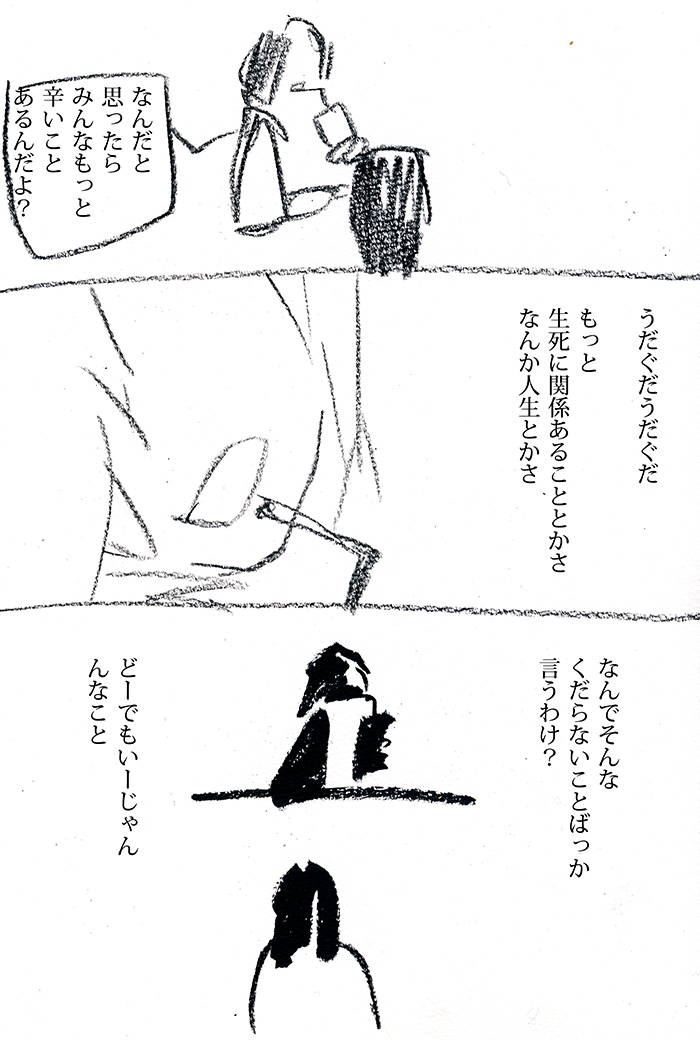 なんだと
思ったら
みんなもっと
辛いこと
あるんだよ?
うだぐだうだぐだ
もっと
生死に関係あることとかさ
なんか人生とかさ
なんでそんな
くだらないことばっか
言うわけ?
どーでもいーじゃん
んなこと